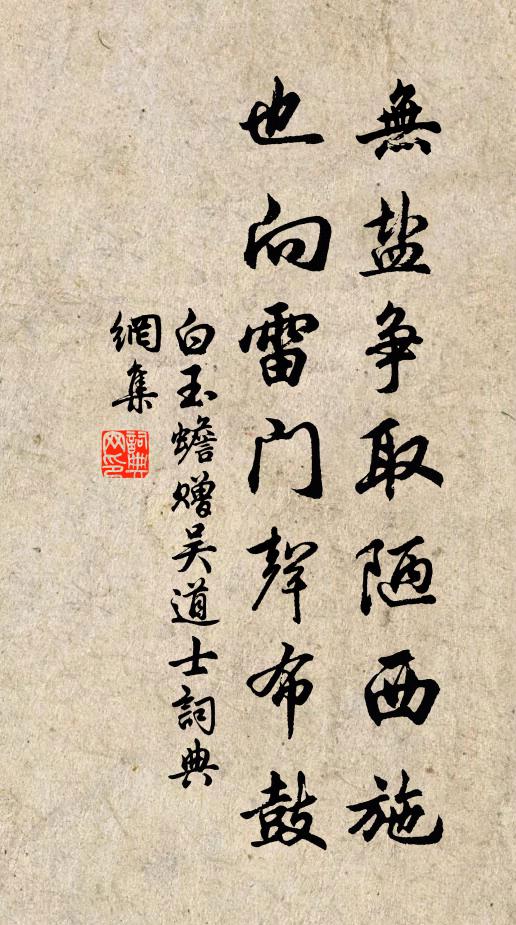 無盐争取陋西施
也向雷門聲布鼓
白玉蟾贈吴道士詞典
網集
詞典
网印